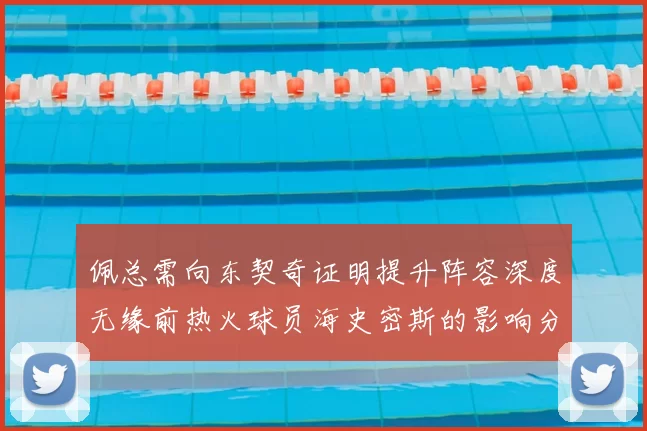 佩总需向东契奇证明提升阵容深度
无缘前热火球员海史密斯的影响分